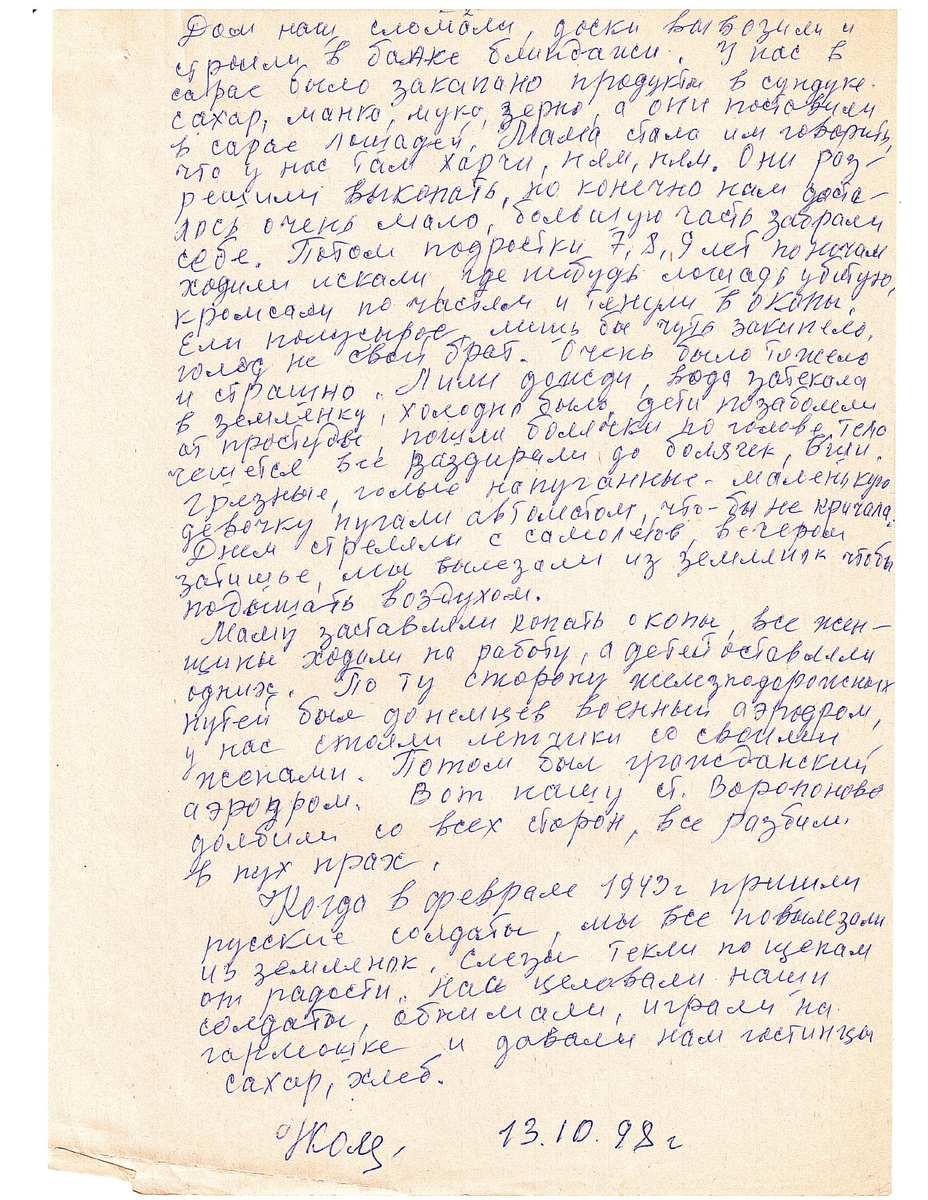 Дом наш сломали, доски вывозили и
строили в балке блиндажи. У нас в
сарае было закапано продукты в сундуке.
сахар, манка, мука, зерно, а они поставили
в сарае лошадей. Мама стала им говорить,
что у нас там харчи, ням, ням. Они раз-
решили выкопать, но конечно нам доста-
лось очень мало, большую часть забрали
себе. Потом подростки 7, 8, 9 лет по ночам
ходили искали, где нибудь лошадь убитую,
кромсали по частям и тянули в окопы.
Ели полусырое, лишь бы чуть закипело,
голод не свой брат. Очень было тяжело
и страшно. Лили дожди, вода затекала
в землянку, холодно было, дети позаболели
от простуды, пошли болячки по голове, тело
чешется все раздирали до болячек, вши.
Грязные, голые напуганные - маленькую
девочку пугали автоматом, что-бы не кричала.
Днем стреляли с самолетов, вечером
затишье, мы вылезали из землянок чтобы
подышать воздухом.
Маму заставляли копать окопы, все жен-
щины ходили на работу, а детей оставляли
одних. По ту сторону железнодорожных
путей был до немцев военный аэродром,
у нас стояли летчики со своими
женами. Потом был гражданский
аэродром. Вот нашу ст. Воропоново
долбили со всех сторон, все разбили
в пух прах.
Когда в феврале 1943 г пришли
русские солдаты, мы все повылезали
из землянок, слезы текли по щекам
от радости. Нас целовали наши
солдаты, обнимали, играли на
гармошке и давали нам гостинцы
сахар, хлеб.
13.10.98 г